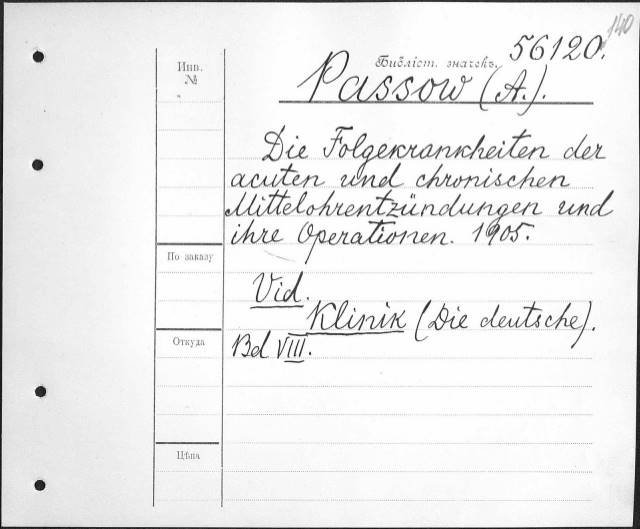 140
56120.
Библіот. значекъ.
Passow (A.).
Инв.
№
Die Folgekrankheiten der
acuten und chronischen
Mittelohrentzündungen und
ihre Operationen. 1905.
По заказу
Vid.
Klinik (Die deutsche).
Откуда
Bd VIII.
Цѣна